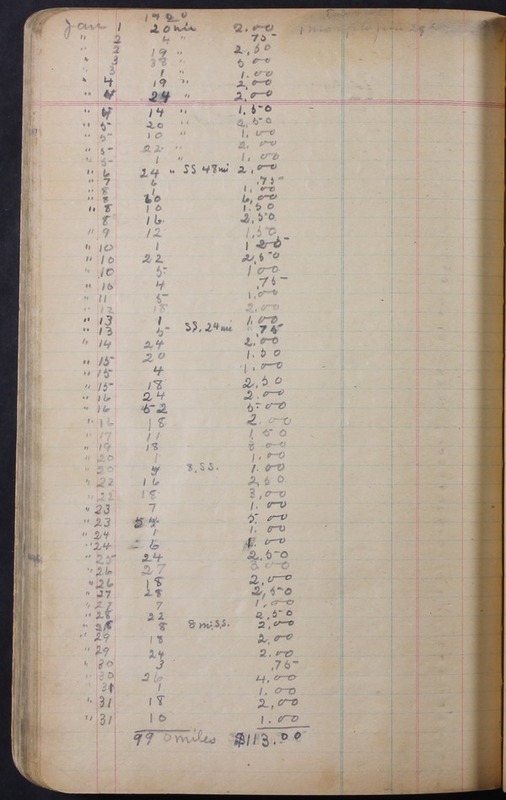 1920
Jan 1 20 mi 2.00
" 2 4 " 75
" 2 19 " 2.50
" 3 38 " 5.00
" 3 1 " 1.00
" 4 19 " 2.00
" 4 24 " 2.00
" 4 14 " 1.50
" 5 20 " 2.50
" 5 10 " 1.00
" 5 22 " 2.00
" 5 1 " 1.00
" 6 24 " SS 48 mi 2.00
" 7 6 .75
" 8 1 1.00
" 8 60 6.00
" 8 10 1.50
8 16 2.50
" 9 12 1.50
" 10 1 1 25
" 10 22 2.50
" 10 5 1 00
" 10 4 .75
" 11 5 1.00
" 12 18 2.00
" 13 1 1.00
" 13 5 SS, 24 mi .75
" 14 24 2.00
" 15 20 1.50
" 15 4 1.00
" 15 18 2.50
" 16 24 2.00
" 16 52 5.00
" 16 18 2.00
" 17 11 1.50
" 19 18 00
" 20 1 1.00
" 20 8, SS. 1.00
" 22 16 2,50
" 22 18 3,00
" 23 7 1.00
" 23 5.00
" 24 1 1.00
" 24 6 1.00
" 25 24 2.50
" 26 27 3 00
" 26 18 2,00
" 27 28 2,50
" 27 7 1,00
" 28 22 2,50
" 28 8 8 mi, S.S. 2,00
" 29 18 2,00
" 29 24 2.00
" 30 3 .75
" 30 26 4.00
" 31 1 1.00
" 31 18 2,00
" 31 10 1.00
990 miles $113.00